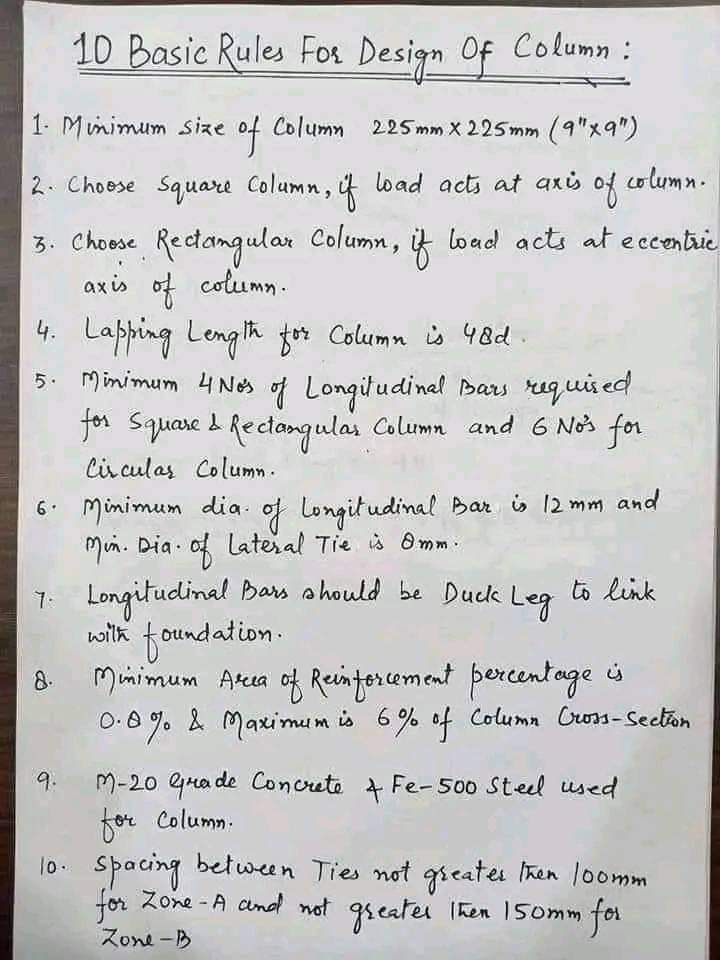 10 Basic Rules For Design Of Column :
1. Minimum size of Column 225mm X 225mm (9"x9")
2. Choose Square Column, if load acts at axis of column.
3. Choose Rectangular Column, if load acts at eccentric
axis of column.
4. Lapping Length for Column is 48d.
5. Minimum 4 No's of Longitudinal Bars required
for Square & Rectangular Column and 6 No's for
Circular Column.
6. Minimum dia. of Longitudinal Bar is 12 mm and
Min. Dia. of Lateral Tie is 8mm.
7. Longitudinal Bars should be Duck Leg to link
with foundation.
8. Minimum Area of Reinforcement percentage is
0.8% & Maximum is 6% of Column Cross-Section
9. M-20 Grade Concrete & Fe-500 Steel used
for Column.
10. Spacing between Ties not greater then 100mm
for Zone-A and not greater then 150mm for
Zone-B